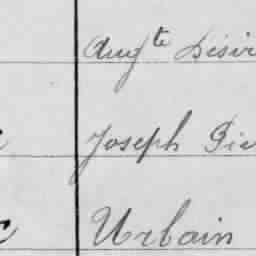 Aug^te Désir
Joseph Pie
Urbain